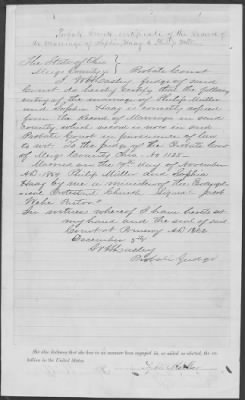 Probate Court certificate of the Record of
the Marriage of Sophia Haag & Philip Miller
The State of Ohio
Meigs County } Probate Court
I judge of said
Court do hereby certify that the following
entry of the marriage of Philip Miller
and Sophia Haag is correctly copied
from the Record of Marriages in said
county which record is now in said
Probate Court in pursuance of law
to wit. To the judge of the Probate Court
of Meigs County Ohio. No 1125
Married on the 9th day of November
AD 1854 Philip Miller and Sophia
Haag by me a minister of the Evangel-
ical Protestant Church signed Jacob
Pastor
In witness whereof I have hereto set
my hand and the seal of said
Court at Pomeroy AD 1862
December 8th
Probate Judge
She also declares that she has in no manner been engaged in, or aided or abetted, the re-
bellion in the United States.